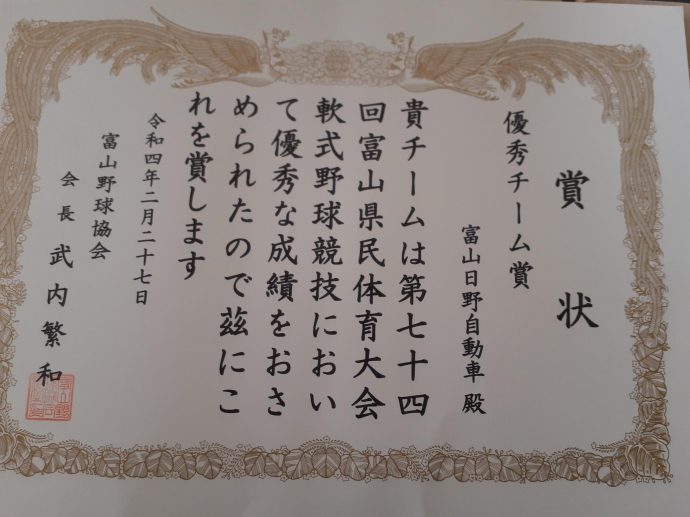 賞状
優秀チーム賞
富山日野自動車殿
貴チームは第七十四
回富山県民体育大会
軟式野球競技におい
て優秀な成績をおさ
められたので茲にこ
れを賞します
令和四年二月二十七日
富山野球協会
会長 武内繁和